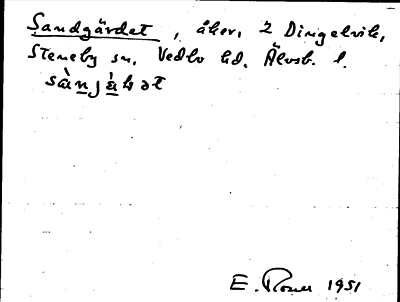 Sandgärdet, åker, 2 Dingelvik,
Steneby sn. Vedbo hd. Älvsb. l.
sànjàʰət
E. Rosell 1951